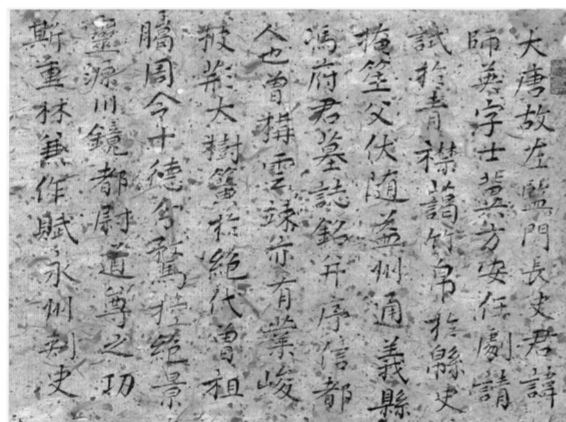 大唐故左監門長史君諱
師英字士冀方安任劇請
試於青襟藹竹帛於緜史
掩筌父伏隨益州通義縣
馮府君墓誌銘并序信都
人也曽構雲竦亦有業峻
披荊大樹簜於絕代曽祖
騰周令十德分驚控絕景
靈源川鏡都尉道尊之功
斯重林兼作賦永州刺史